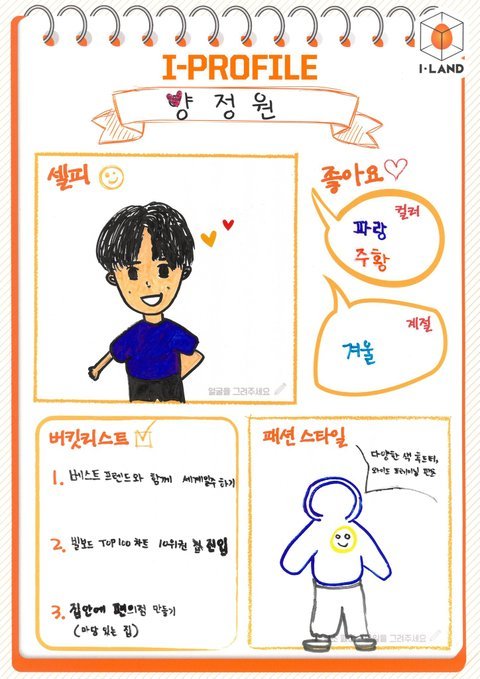 I·LAND
I-PROFILE
양정원
셀피
좋아요
컬러
파랑
주황
계절
겨울
얼굴을 그려주세요
버킷리스트
1. 베스트 프렌드와 함께 세계일주하기
2. 빌보드 TOP100 차트 10위권 진입
3. 집안에 편의점 만들기
(마당 있는 집)
패션 스타일
다양한 색 후드티,
와이드 트레이닝 팬츠
그려주세요